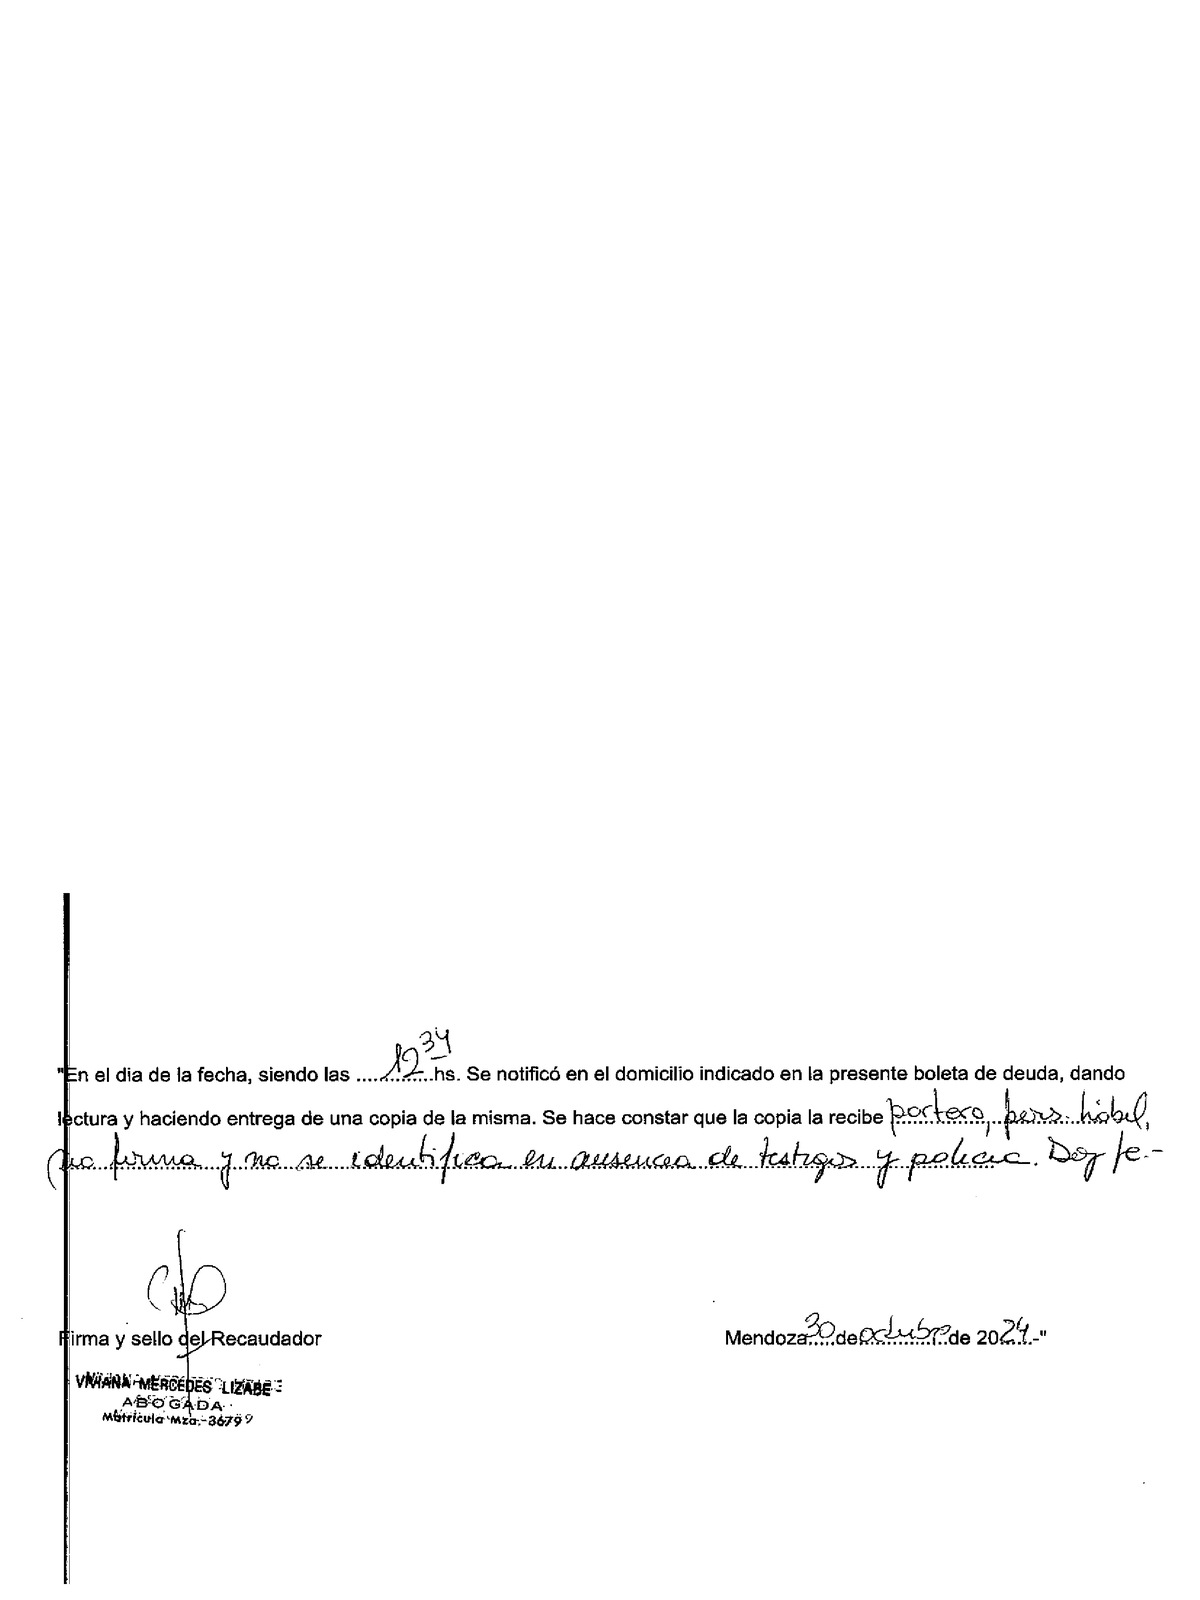 "En el dia de la fecha, siendo las ....12 34....hs. Se notificó en el domicilio indicado en la presente boleta de deuda, dando
lectura y haciendo entrega de una copia de la misma. Se hace constar que la copia la recibe portero, pers. hábil,
no firma y no se identifica en ausencia de testigos y policia. Doy fe.-
Firma y sello del Recaudador
Mendoza 30 de octubre de 2024.-"
VIVIANA MERCEDES LIZABE
ABOGADA
Matrícula Mza. 3679